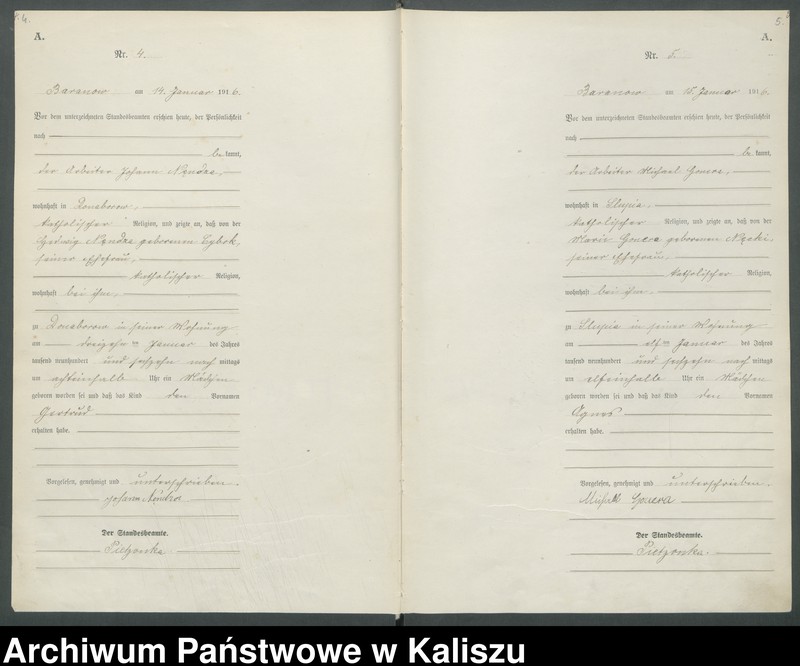 4.
A.
Nr. 4.
Baranow am 14. Januar 1916.
Vor dem unterzeichneten Standesbeamten erschien heute, der Persönlichkeit
nach
be kannt,
der Arbeiter Johann
wohnhaft in
katholischer Religion, und zeigte an, daß von der
Hedwig geborenen
seiner Ehefrau,
katholischer Religion,
wohnhaft bei ihm,
zu in seiner Wohnung
am dreizehn ten Januar des Jahres
tausend neunhundert und sechzehn nach mittags
um achteinhalb Uhr ein Mädchen
geboren worden sei und daß das Kind den Vornamen
Gertrud
erhalten habe.
Vorgelesen, genehmigt und unterschrieben.
Johann
Der Standesbeamte.
5.
A.
Nr. 5.
Baranow am 15. Januar 1916.
Vor dem unterzeichneten Standesbeamten erschien heute, der Persönlichkeit
nach
be kannt,
der Arbeiter Michael
wohnhaft in Slupia,
katholischer Religion, und zeigte an, daß von der
Marie geborenen
seiner Ehefrau,
katholischer Religion,
wohnhaft bei ihm
zu Slupia in seiner Wohnung
am elf ten Januar des Jahres
tausend neunhundert und sechzehn nach mittags
um elfeinhalb Uhr ein Mädchen
geboren worden sei und daß das Kind den Vornamen
Agnes
erhalten habe.
Vorgelesen, genehmigt und unterschrieben.
Der Standesbeamte.
Archiwum Państwowe w Kaliszu